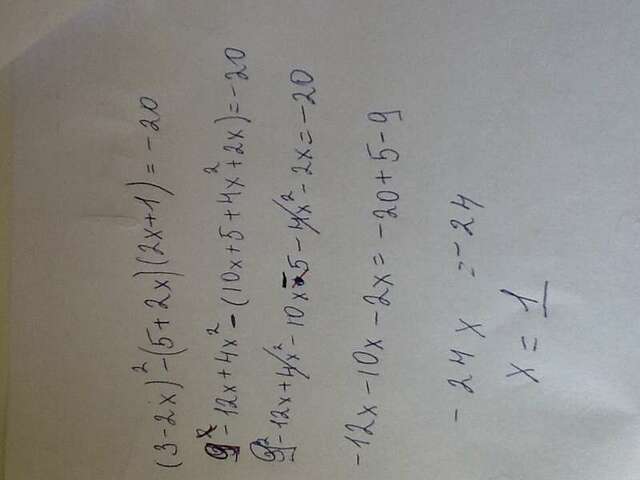 (3-2x)²-(5+2x)(2x+1)=-20
9²-12x+4x²-(10x+5+4x²+2x)=-20
9²-12x+4x²-10x-5-4x²-2x=-20
-12x-10x-2x=-20+5-9
-24x=-24
x=1